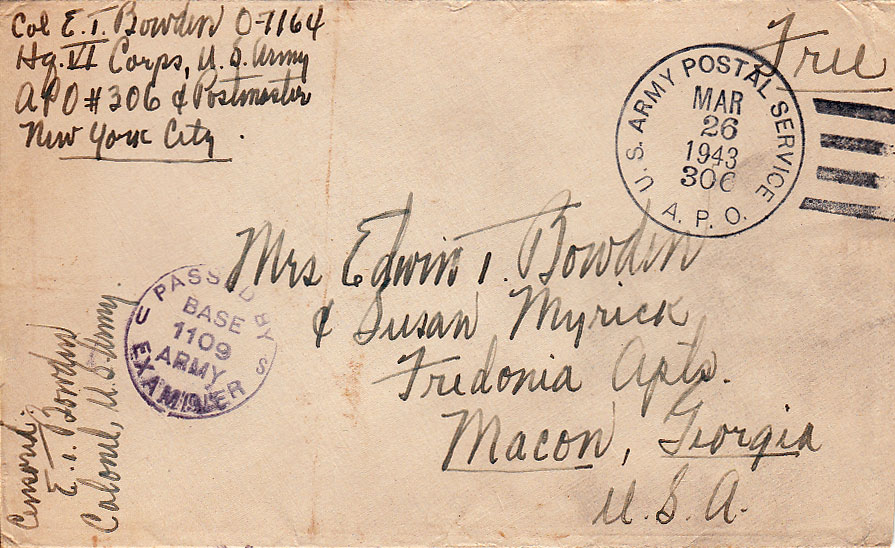 Col E. T. Bowden O-7164
Hq. VI Corps, U.S. Army
APO #306 % Postmaster
New York City.
Free
U.S. ARMY POSTAL SERVICE
MAR
26
1943
306
A.P.O.
Mrs Edwin T. Bowden
% Susan Myrick
Fredonia Apts.
Macon, Georgia
U.S.A.
PASSED BY
BASE
1109
ARMY
EXAMINER
U S
Censored:
E. T. Bowden
Colonel, U.S. Army.